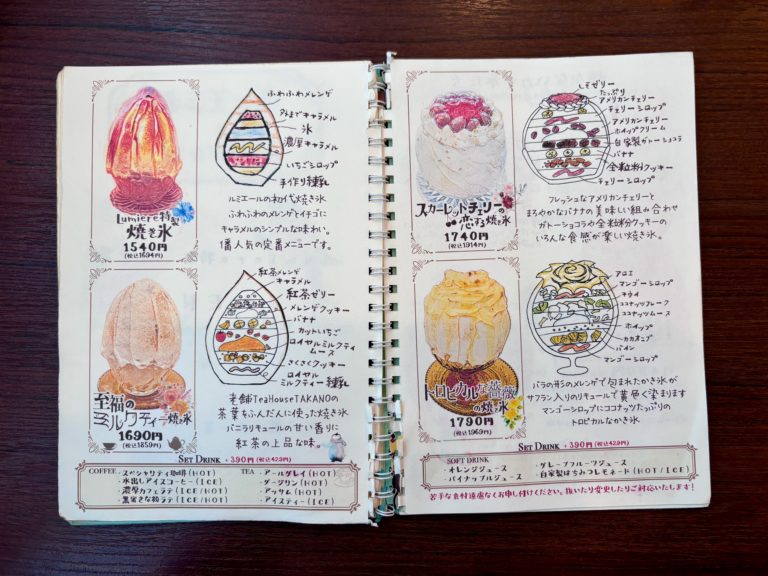 ふわふわメレンゲ
外までキャラメル
氷
濃厚キャラメル
いちごシロップ
手作り練乳
Lumiere特製
焼き氷
1540円
(税込1694円)
ルミエールの初代焼き氷
ふわふわのメレンゲとイチゴに
キャラメルのシンプルな味わい。
1番人気の定番メニューです。
紅茶メレンゲ
キャラメル
紅茶ゼリー
メレンゲクッキー
バナナ
カットいちご
ロイヤルミルクティ
ムース
さくさくクッキー
ロイヤル
ミルクティー練乳
至福の
ミルクティー焼き氷
1690円
(税込1859円)
老舗TeaHouseTAKANOの
茶葉をふんだんに使った焼き氷
バニラリキュールの甘い香りに
紅茶の上品な味。
SET DRINK +390円(税込429円)
COFFEE ・スペシャリティ珈琲(HOT)
・水出しアイスコーヒー(ICE)
・濃厚カフェラテ(ICE/HOT)
・黒蜜きな粉ラテ(ICE/HOT)
TEA ・アールグレイ(HOT)
・ダージリン(HOT)
・アッサム(HOT)
・アイスティー(ICE)
ゼリー
たっぷり
アメリカンチェリー
チェリーシロップ
アメリカンチェリー
ホイップクリーム
自家製ガトーショコラ
バナナ
全粒粉クッキー
チェリーシロップ
スカーレットチェリーの
恋する焼き氷
1740円
(税込1914円)
フレッシュなアメリカンチェリーと
まろやかなバナナの美味しい組み合わせ
ガトーショコラや全粒粉クッキーの
いろんな食感が楽しい焼き氷。
アロエ
マンゴーシロップ
キウイ
ココナッツフレーク
ココナッツムース
ホイップ
カカオニブ
パイン
マンゴーシロップ
トロピカルな薔薇
の焼き氷
1790円
(税込1969円)
バラの形のメレンゲで包まれたかき氷が
サフラン入りのリキュールで黄色く染まります
マンゴーシロップにココナッツたっぷりの
トロピカルなかき氷
SET DRINK +390円(税込429円)
SOFT DRINK
・オレンジジュース
・パイナップルジュース
・グレープフルーツジュース
・自家製はちみつレモネード(HOT/ICE)
苦手な食材遠慮なくお申し付けください。抜いたり変更したりご対応いたします!